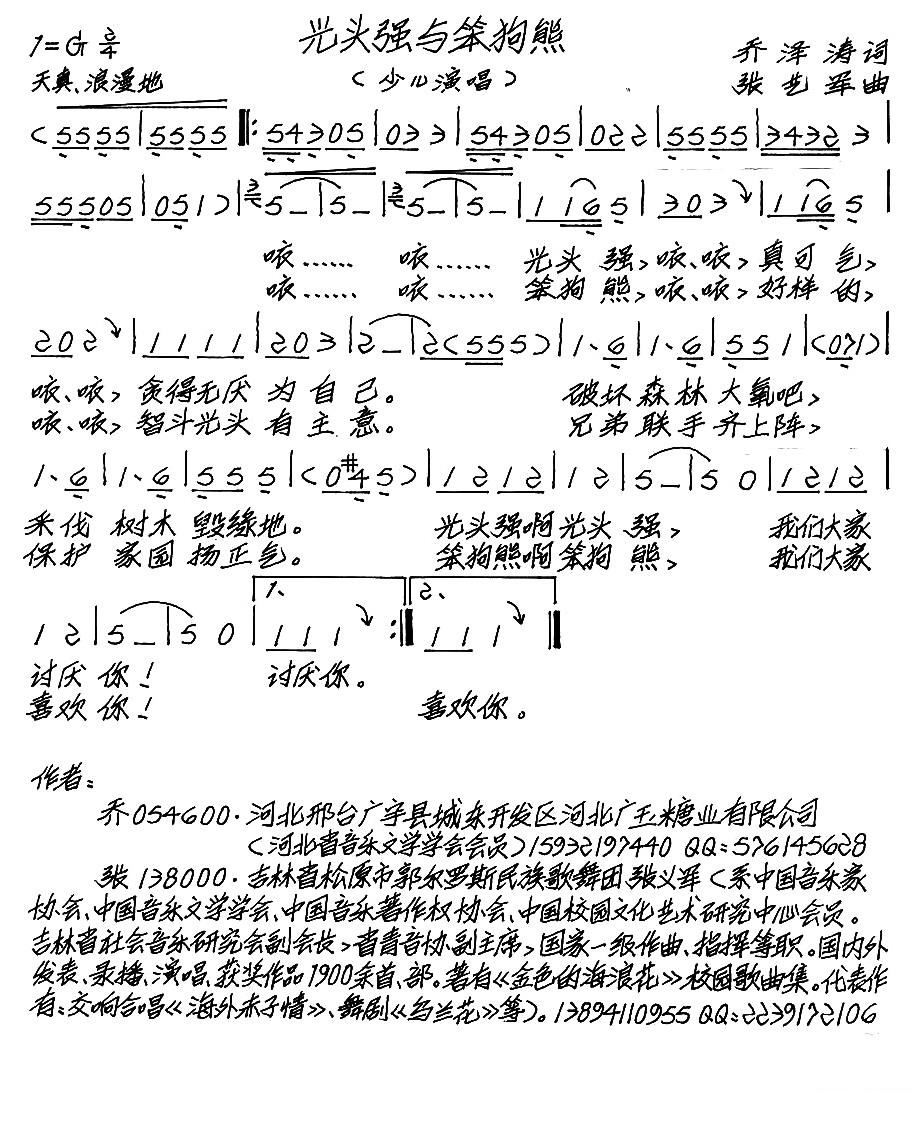 光头强与笨狗熊
1=G 2/4
乔泽涛词
天真、浪漫地
（少儿演唱）
张艺军曲
(5555|5555‖:54305|033|54305|0222|5555|34323|
55505|051)|5–|5–|5–|5–|1165|303|1165|
咴…… 咴…… 光头强,咴、咴,真可气,
咴…… 咴…… 笨狗熊,咴、咴,好样的,
202|1111|203|2–|2(555)|1、6|1、6|551|(071)|
咴、咴,贪得无厌为自己。 破坏森林大氧吧,
咴、咴,智斗光头有主意。 兄弟联手齐上阵,
1、6|1、6|555|(0#45)|1212|12|5–|50|1212|
采伐树木毁绿地。 光头强啊光头强, 我们大家
保护家园扬正气。 笨狗熊啊笨狗熊, 我们大家
12|5–|50|1、111:‖2、111‖
讨厌你! 讨厌你。
喜欢你! 喜欢你。
作者:
乔054600·河北邢台广宗县城东开发区河北广玉糖业有限公司
(河北省音乐文学学会会员)15932197440 QQ:576145628
张138000·吉林省松原市郭尔罗斯民族歌舞团 张义军(系中国音乐家
协会、中国音乐文学学会、中国音乐著作权协会、中国校园文化艺术研究中心会员。
吉林省社会音乐研究会副会长,省青音协副主席,国家一级作曲、指挥等职。国内外
发表、录播、演唱、获奖作品1900余首、部。著有《金色的海浪花》校园歌曲集。代表作
有:交响合唱《海外赤子情》、舞剧《乌兰花》等)。13894110955 QQ:2239172106